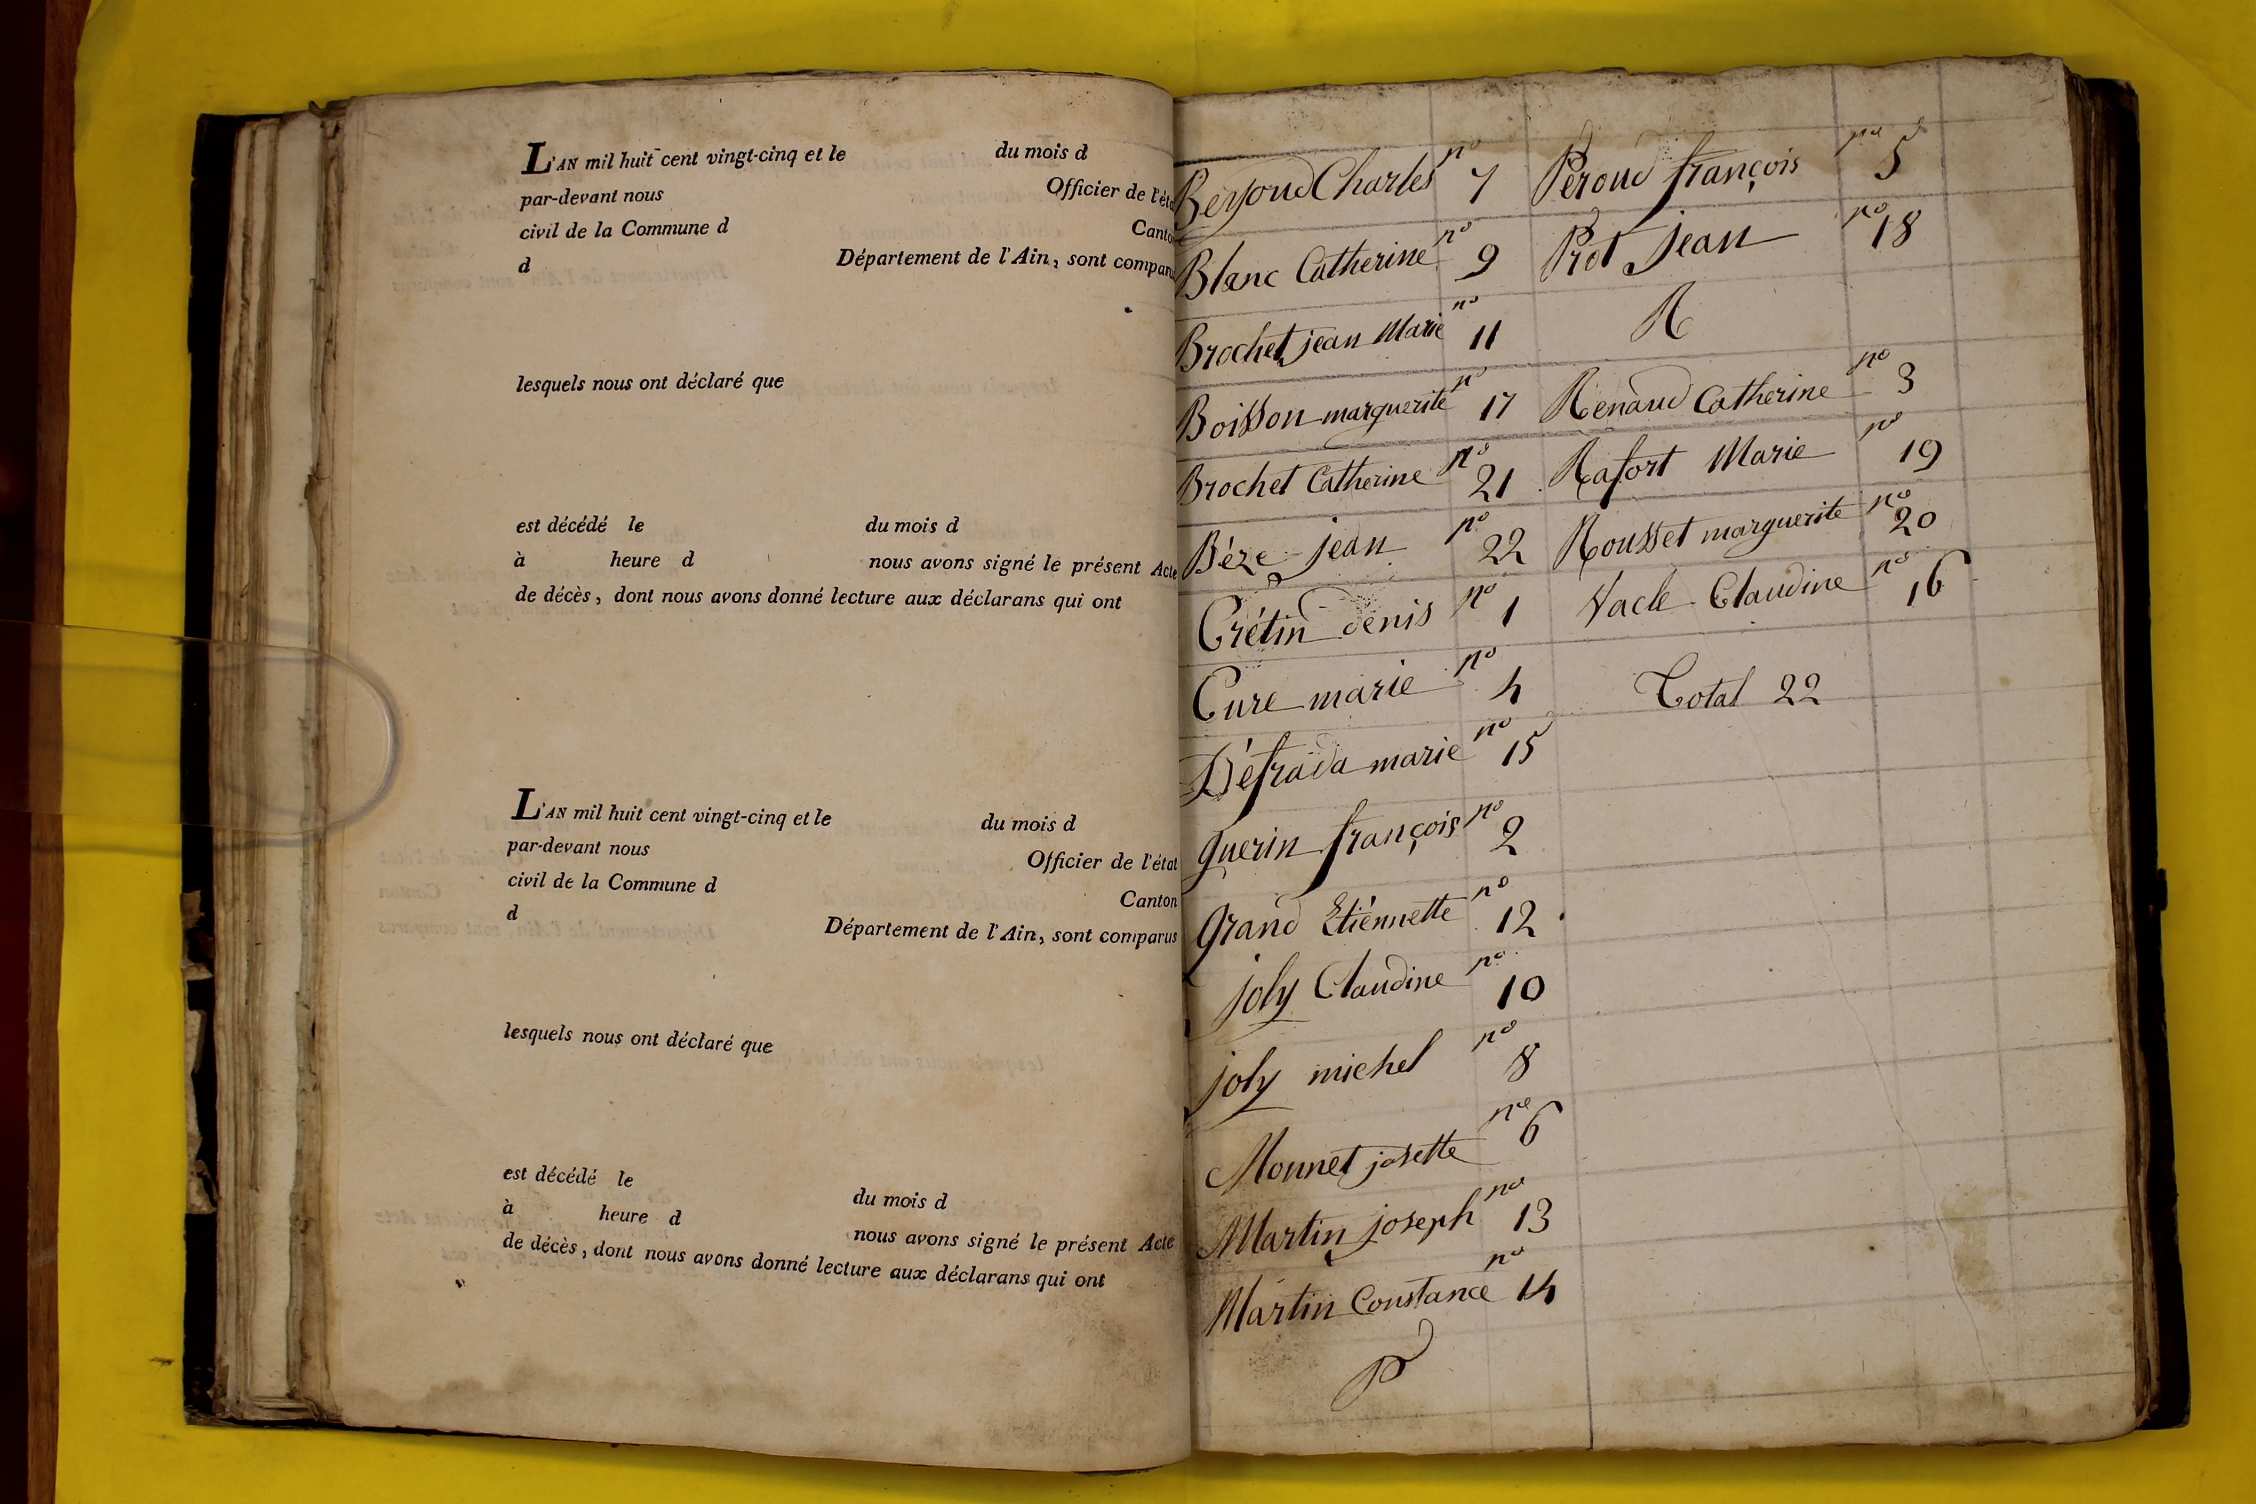 L'AN mil huit cent vingt-cinq et le du mois d
par-devant nous Officier de l'éta
civil de la Commune d Canton
d Département de l'Ain, sont comparu
lesquels nous ont déclaré que
est décédé le du mois d
à heure d nous avons signé le présent Acte
de décès, dont nous avons donné lecture aux déclarans qui ont
L'AN mil huit cent vingt-cinq et le du mois d
par-devant nous Officier de l'état
civil de la Commune d Canton
d Département de l'Ain, sont comparus
lesquels nous ont déclaré que
est décédé le du mois d
à heure d nous avons signé le présent Acte
de décès, dont nous avons donné lecture aux déclarans qui ont
Charles no 7
Blanc Catherine no 9
Brochet jean Marie no 11
Boisson marguerite no 17
Brochet Catherine no 21
Béze jean no 22
Crétin denis no 1
Cure marie no 4
Défrada marie no 15
guerin françois no 2
grand Etiénnette no 12
joly Claudine no 10
joly michel no 8
Monnet josette no 6
Martin joseph no 13
Martin Constance no 14
P
Peroud françois no 5
Prot Jean no 18
R
Renaud Catherine no 3
Rafort Marie no 19
Rousset marguerite no 20
Vacle Claudine no 16
Total 22